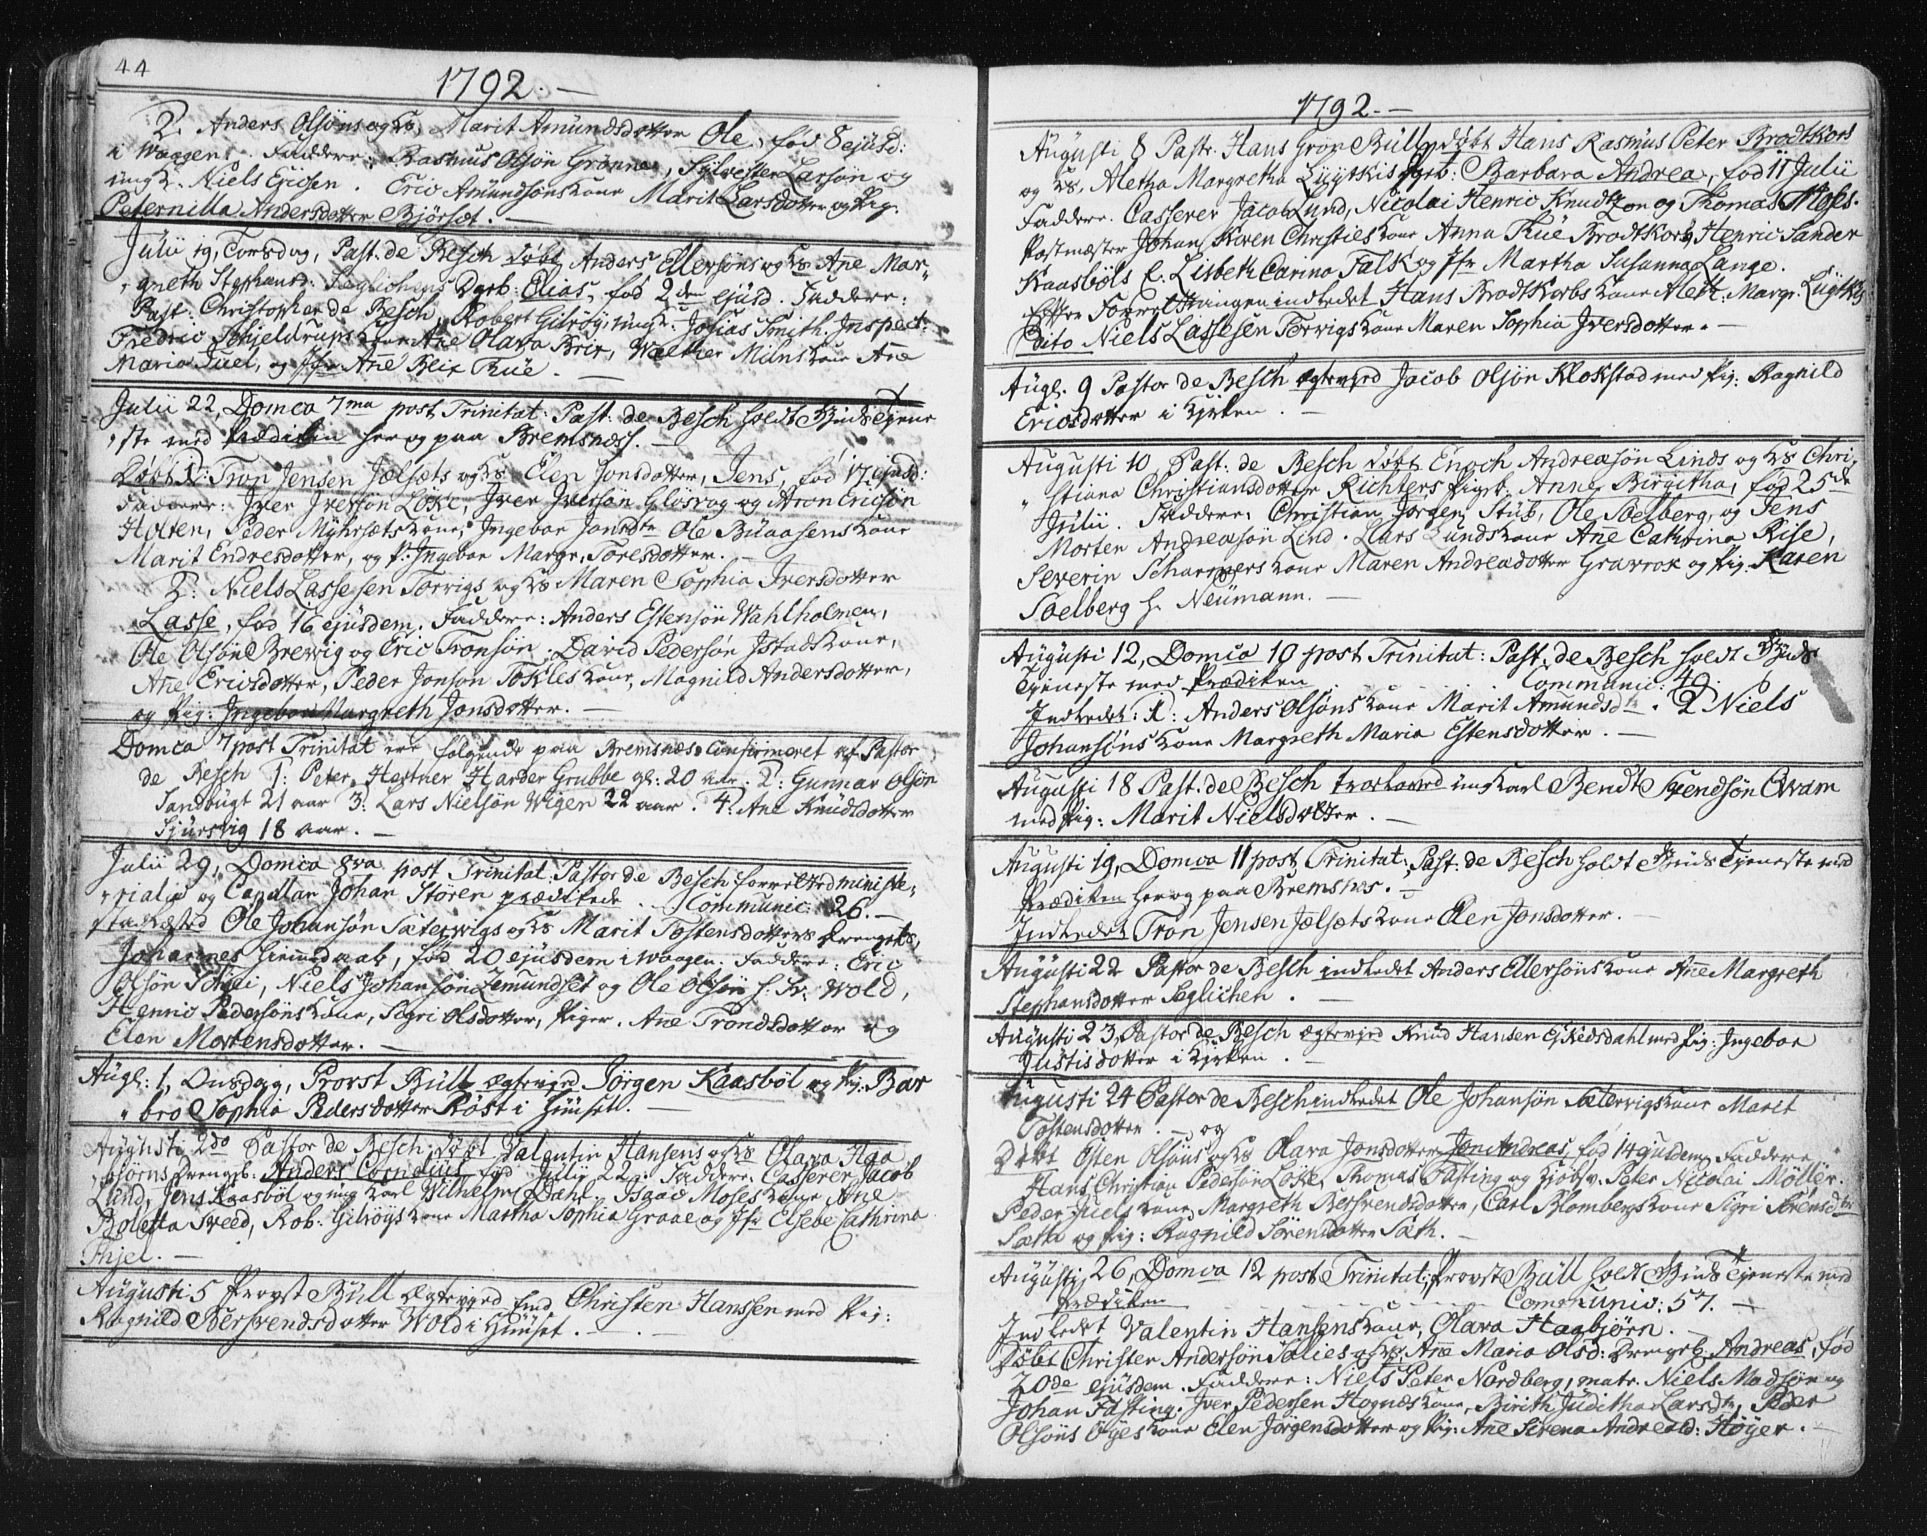 44
1792.—
2. Anders Olsöns og Ks Marit Amundsdotter Ole, fød 8 ejusd:
i Waagen. Faddere: Rasmus Olsön Grönnes, Sylvester Larsön og
ungk. Niels Ericsen. Eric Amundsöns kone Marit Larsdotter og Pig:
Peternilla Andersdotter Björset.—
Julii 19, Torsdag, Past. de Besch døbt Anders Ellersöns og Ks Ane Mar-
greth Stephansd: Seglichens Dgeb: Elias, fød 2den ejusd. Faddere:
Past: Christopher de Besch, Robert Gilröy, ungk. Josias Smith. Inspect:
Fredric Schjeldrups kone Ane Olava Brix, Walther Milns kone Ane
Maria Juel, og Jfr Ane Beix Thue.—
Julii 22, Domca 7ma post Trinitat: Past: de Besch holdt Gudstjene
ste med Prædiken her og paa Bremsnæs.—
Døbt 1: Tron Jensen Jælsæts og Ks Elen Jonsdotter, Jens, fød 17 ejusd:
Faddere: Iver Iversön Löke, Iver Iversön Glesvog og Aron Ericsön
Holten, Peder Myhrsæts kone, Ingebor Jonsdtr Ole Buaasens kone
Marit Endresdotter, og P: Ingebor Margr. Toresdotter.—
2. Niels Lassesen Torvigs og Ks Maren Sophia Iversdotter
Lasse, fød 16 ejusdem. Faddere: Anders Estensön Wahlholmen,
Ole Olsön Brevig og Eric Tronsön. David Pedersön Istads kone,
Ane Ericsdotter, Peder Jonsön Tokles kone, Magnild Andersdotter,
og Pig: Ingebor Margreth Jonsdotter.—
Domca 7 post Trinitat ere følgende paa Bremsnæs Confirmeret af Pastor
de Besch 1: Peter Hertner Harder Grubbe gl: 20 aar. 2: Gunnar Olsön
Sandbugt 21 aar 3: Lars Nielsön Wigen 22 aar. 4: Ane Knudsdotter
Sjursvig 18 aar.—
Julii 29, Domca 8va post Trinitat: Pastor de Besch forretted ministe-
rialia og Capellan Johan Stören prædikede. Communic: 26.—
Ole Johansön Sætervigs og Ks Marit Tostensdotters Drengeb.
Johannes hiemedaab, fød 20 ejusdem i Waagen. Faddere: Eric
Olsön, Niels Johansön Zemundset og Ole Olsön Wold,
Henric Pedersöns kone, Sigri Olsdotter, Piger. Ane Trondsdotter og
Elen Mortensdotter.—
Augl: 1, Onsdag, Provst Bull ægtevied Jörgen Kaasböl og Pig: Bar
bro Sophia Pedersdotter Röst i Huuset.—
Augusti 2do Pastor de Besch døbt Valentin Hansens og Ks Olava Haa
björns Drengeb. Anders Cornelius, fød Julii 22. Faddere: Casserer Jacob
Lund, Jens Kaasböl og ung karl Wilhelm Dahl. Isaac Moses kone Ane
Boletta Sveed, Rob: Gilröys kone Martha Sophia Graae og Jfr Elsebe Cathrina
Thjel.—
Augusti 5 Provst Bull ægteviede Christen Hanssen med Pig:
Ragnild Bersvendsdotter Wold i Huuset.—
1792.—
Augusti 8 Past. Hans Gron Bull døbt Hans Rasmus Peter Brodtkorb
og Ks. Aletha Margretha Lüytkis Dgeb: Barbara Andrea, fød 11 Julii
Faddere. Casserer Jacob Lund, Nicolai Henric Knudtzon og Thomas Moses.
Postmester Johan Koren Christies kone Anna Thue Brodtkorb, Henric Sander
Kaasböls E. Lisbeth Carina Falk og Jfr Martha Susanna Lange.
Efter Forretningen indledet Hans Brodtkorbs kone Aleth. Margr. Lüytkis
Dito Niels Lassesen Torvigs kone Maren Sophia Iversdotter.—
Augl. 9 Pastor de Besch ægteviede Jacob Olsön Klokstad med Pig: Ragnild
Ericsdotter i Kirken.—
Augusti 10 Past: de Besch døbt Enoch Andreasön Linds og Ks Chri-
stiana Christiansdotter Richters Pigeb. Anne Birgitha, fød 25de
Julii. Faddere: Christian Jörgen Stub, Ole Soelberg, og Jens
Morten Andreasön Lind. Lars Lunds kone Ane Cathrina Riise,
Severin Scharpers kone Maren Andreadotter Gravrok og Pig. Karen
Soelberg h. Neumann.—
Augusti 12, Domca 10 post Trinitat: Past. de Besch holdt Guds
Tjeneste med Prædiken Communic: 49.
Indledet: 1: Anders Olsöns kone Marit Amundsdtr. 2 Niels
Johansöns kone Margreth Maria Estensdotter.—
Augusti 18 Past. de Besch trolovede ungkarl Bendt Svendsön Qvam
med Pig: Marit Nielsdotter.—
Augusti 19, Domca 11 post Trinitat: Past: de Besch holdt Guds Tjeneste med
Prædiken her og paa Bremsnæs.—
Indledet Tron Jensen Jælsæts kone Elen Jonsdotter.—
Augusti 22 Pastor de Besch indledet Anders Ellersöns kone Ane Margreth
Stephansdotter Seglichen.—
Augusti 23, Pastor de Besch ægteviede Knud Hansen Eskedsdahl med Pig: Ingebor
Justisdotter i Kirken.—
Augusti 24 Pastor de Besch indledet Ole Johansön Sætervigs kone Marit
Tostensdotter.— og
Døbt Osten Olsöns og Ks Olava Jonsdotter Jon Andreas, fød 14 ejusdem. Faddere
Hans Christian Pedersön Löke, Thomas Fasting og Kjöbsv. Peter Nicolai Möller.
Peder Juels kone Margreth Bersvendsdotter, Carl Blombergs kone Sigri Sörensdtr
Sæth og Pig: Ragnild Sörensdotter Sæth.—
Augusti 26, Domca 12 post Trinitat: Provst Bull holdt Guds Tjeneste med
Prædiken Communic: 57.—
Indledet Valentin Hansens kone, Olava Haabjörn.
Døbt Christen Andersön Salies og Ks Ane Maria Olsd: Drengeb. Andreas, fød
20de ejusdem. Faddere: Niels Peter Nordberg, matr. Niels Madsön og
Johan Fasting. Iver Pedersen Hognæs kone, Birith Juditha Larsdtr, Peder
Olsöns Öyes kone Elen Jörgensdotter og Pig: Ane Serena Andreasd: Höyer.—